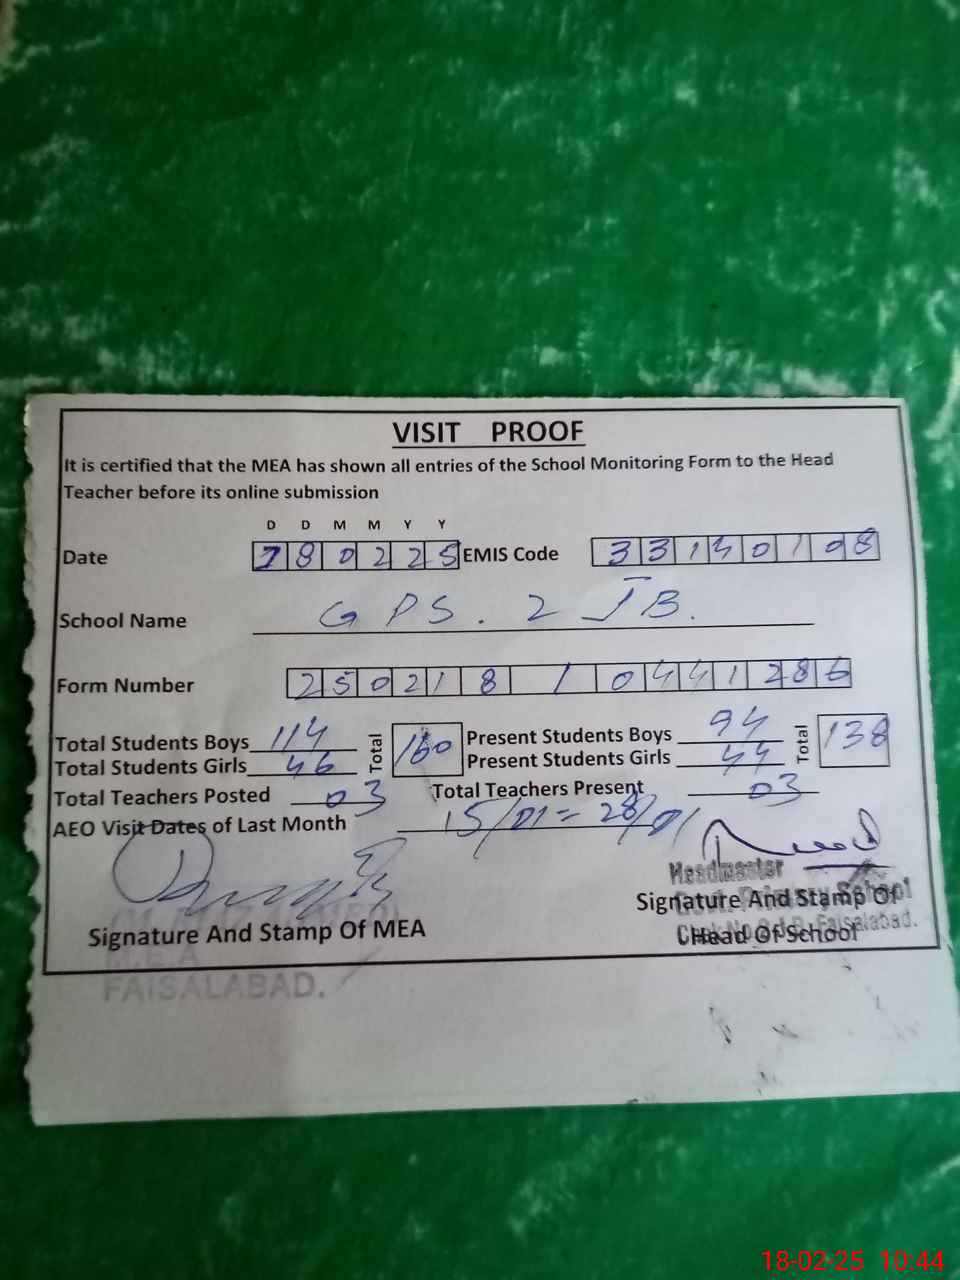 VISIT PROOF
It is certified that the MEA has shown all entries of the School Monitoring Form to the Head
Teacher before its online submission
D D M M Y Y
Date 180225 EMIS Code 33140108
School Name GPS. 2 JB.
Form Number 250218 / 0441286
Total Students Boys 114 Total 160 Present Students Boys 94 Total 138
Total Students Girls 46 Present Students Girls 44
Total Teachers Posted 03 Total Teachers Present 03
AEO Visit Dates of Last Month 15/01 = 28/01
Headmaster
Govt. Primary School
Signature And Stamp Of
Chak No. 2 J.B. Faisalabad.
Head Of School
Signature And Stamp Of MEA
M.E.A
FAISALABAD.
18-02-25 10:44